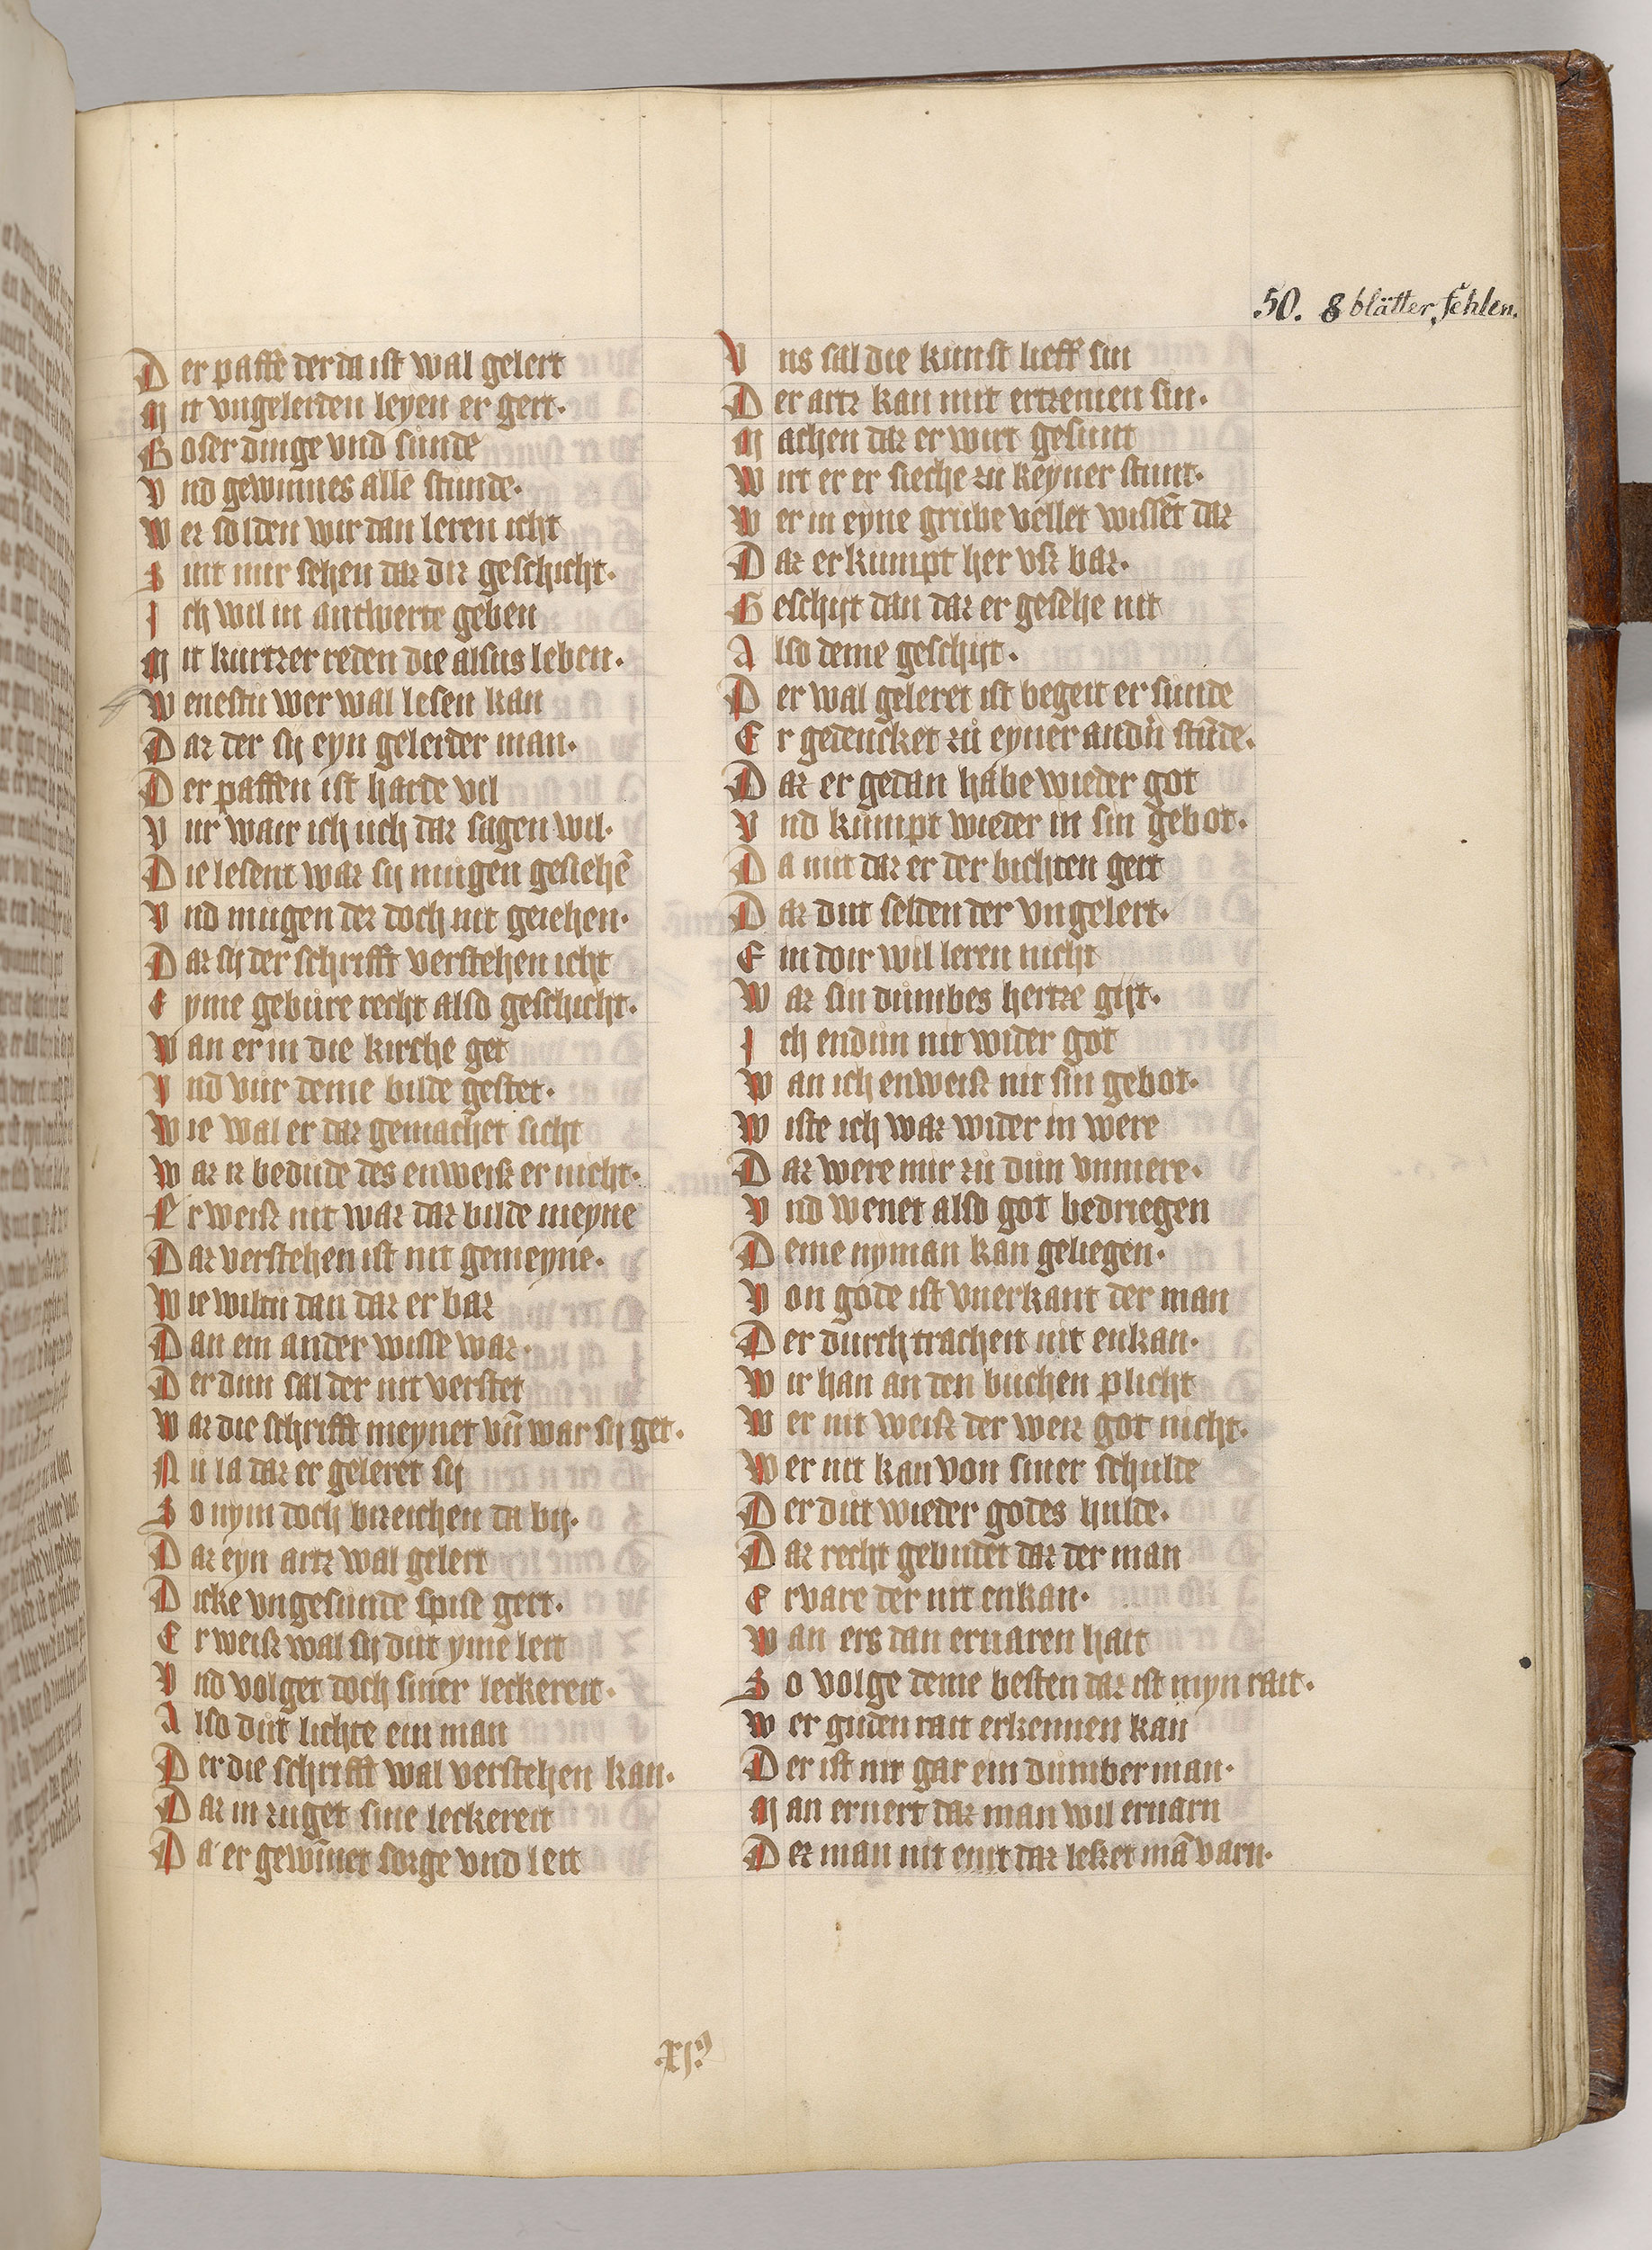 50. 8 blätter fehlen.
Der paffe der da ist wal gelert
Mit vngelerten leyen er gert·
Boser dinge vnd sunde
Vnd gewinnes alle stunde·
Wez solden wir dan leren icht
Sint mir sehen daz diz geschicht·
Ich wil in antwerte geben
Mit kurtzer reden die alsus leben·
Wenestu wer wal lesen kan
Daz der sij eyn gelerder man·
Der paffen ist harde vil
Vur wair ich uch daz sagen wil·
Die lesent waz sij mugen gesiehē
Vnd mugen dez doch nit geiehen·
Daz sij der schrifft verstehen icht
Eyme gebure recht also geschicht·
Wan er in die kirche get
Vnd vur deme bilde gestet·
Wie wal er daz gemachet sicht
Waz iz bedude des enweiß er nicht·
Er weiß nit waz daz bilde meyne
Daz verstehen ist nit gemeyne·
Wie wiltu dan daz er baz
Dan ein ander wisse waz·
Der dun sal der nit verstet
Waz die schrifft meynet vn̄ war sij get·
Nu la daz er geleret sij
So nym doch bizeichen da bij·
Daz eyn artz wal gelert
Dicke vngesunde spise gert·
Er weiß wal sij dut yme leit
Vnd volget doch siner leckereit·
Also dut lichte ein man
Der die schrifft wal verstehen kan·
Daz in zuget sine leckereit
Da er gewīnet sorge vnd leit
Vns sal die kunst lieff sin
Der artz kan mit ertzenien sin·
Machen daz er wirt gesunt
Wirt er er sieche zu keyner stunt·
Wer in eyne grube vellet wissēt daz
Daz er kumpt her vß baz·
Geschijt dan daz er gesehe nit
Also deme geschijt·
Der wal geleret ist begeit er sunde
Er gedencket zu eyner and'n stūde·
Daz er gedan habe wieder got
Vnd kumpt wieder in sin gebot·
Da mit daz er der bichten gert
Daz dut selden der vngelert·
Ein doir wil leren nicht
Waz sin dumbes hertze giht·
Ich endun nit wider got
Wan ich enweiß nit sin gebot·
Wiste ich waz wider in were
Daz were mir zu dun vnmere·
Vnd wenet also got bedriegen
Deme nyman kan geliegen·
Von gode ist vnerkant der man
Der durch trachen nit enkan·
Wir han an den buchen plicht
Wer nit weiß der weiz got nicht·
Wer nit kan von siner schulde
Der dut wieder godes hulde·
Daz recht gebudet daz der man
Ervare der nit enkan·
Wan ers dan ernaren hait
So volge deme besten daz ist myn rait·
Wer guden rait erkennen kan
Der ist nit gar ein dumber man·
Man ernert daz man wil ernarn
Dez man nit enit daz leßet mā varn·
.xj9.